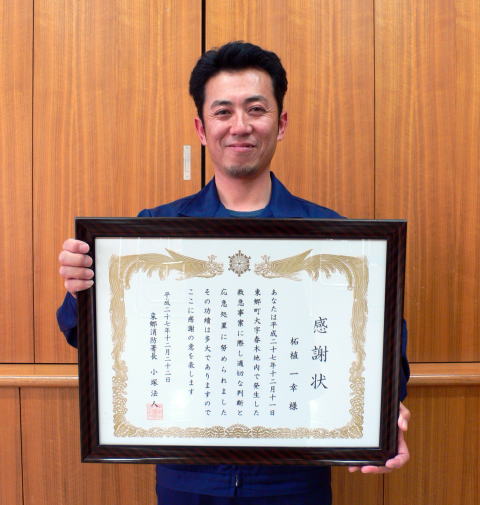 感謝状
柘植一幸様
あなたは平成二十七年十二月十一日
東郷町大字春木地内で発生した
救急事案に際し適切な判断と
応急処置に努められました
その功績は多大でありますので
ここに感謝の意を表します
平成二十七年十二月二十二日
東郷消防署長 小塚法人